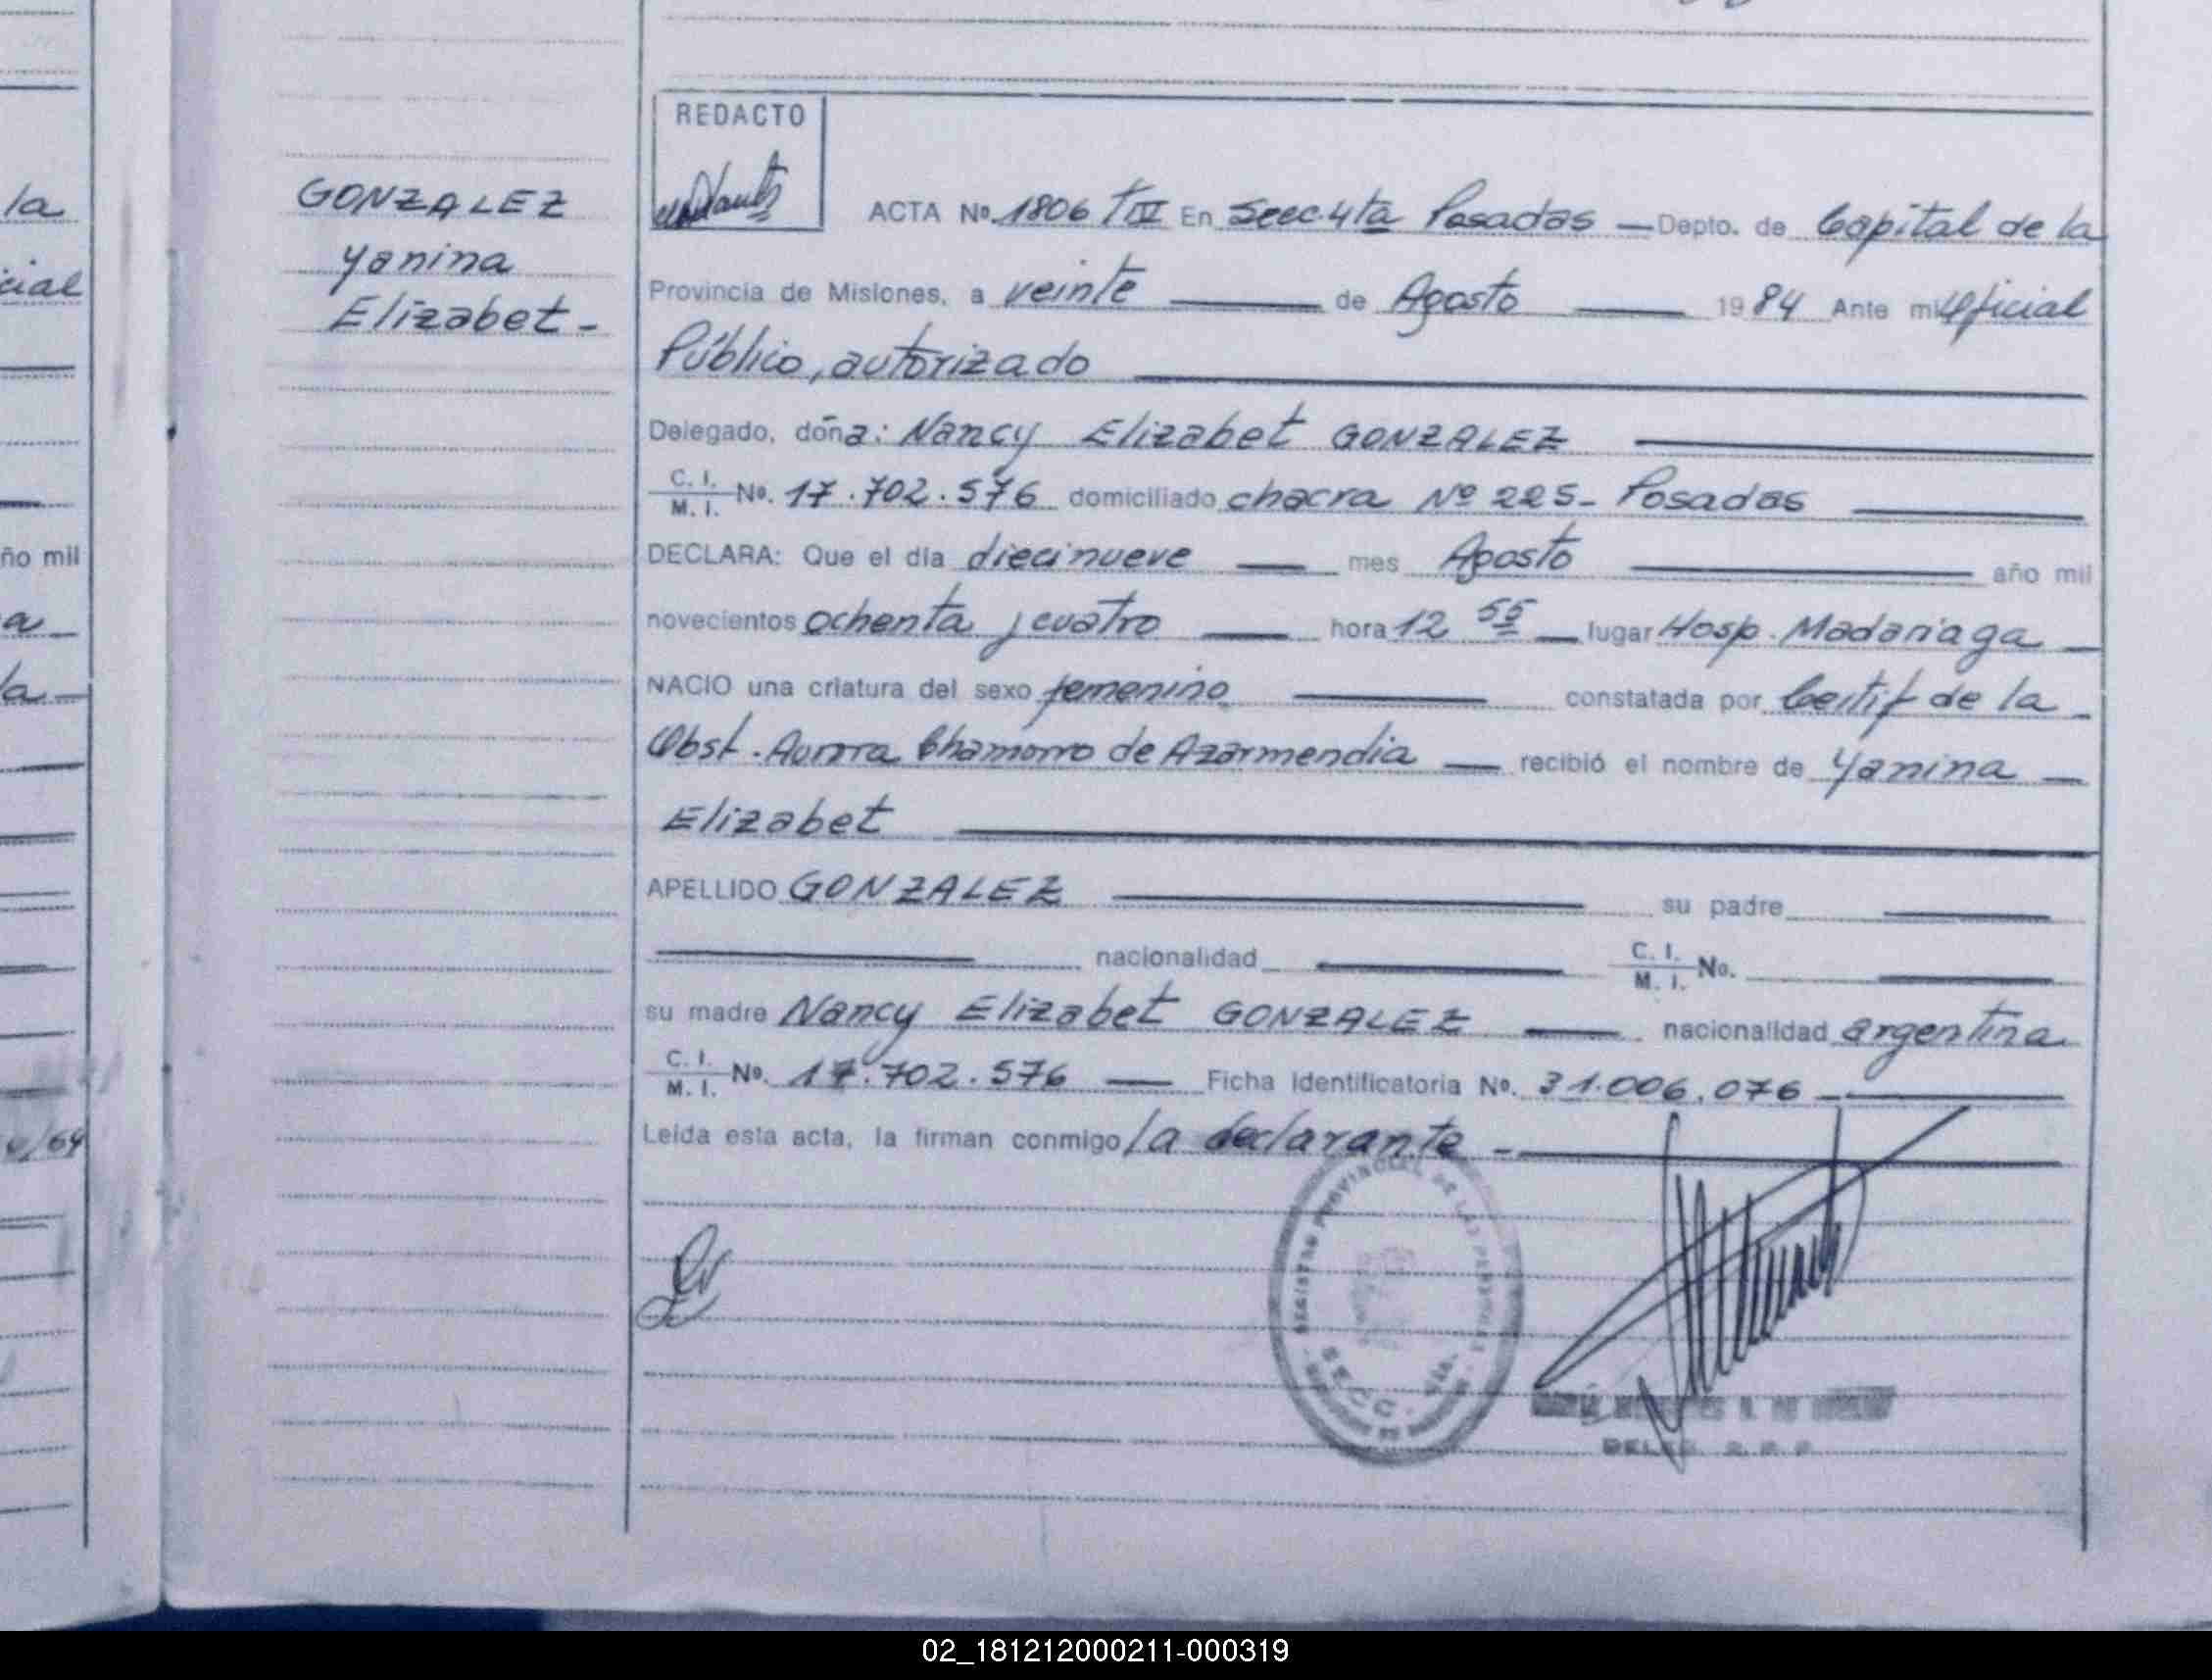 la
cial
ño mil
a
la
GONZALEZ
Yanina
Elizabet-
REDACTO
ACTA No. 1806 TIV En Secc. 4ta Posadas — Depto. de Capital de la
Provincia de Misiones, a veinte — de Agosto — 1984 Ante mi Oficial
Público, autorizado
Delegado, doña: Nancy Elizabet GONZALEZ
C. I. M. I. No. 17.702.576 domiciliado chacra Nº 225- Posadas
DECLARA: Que el día diecinueve — mes Agosto — año mil
novecientos ochenta y cuatro — hora 12 55 — lugar Hosp. Madariaga —
NACIO una criatura del sexo femenino — constatada por Certif de la -
Obst. Aurora Chamorro de Azarmendia — recibió el nombre de Yanina —
Elizabet
APELLIDO GONZALEZ — su padre —
— nacionalidad — C. I. M. I. No. —
su madre Nancy Elizabet GONZALEZ — nacionalidad argentina
C. I. M. I. No. 17.702.576 — Ficha Identificatoria No. 31.006.076 -
Leída esta acta, la firman conmigo la declarante -
REGISTRO PROVINCIAL DE LAS PERSONAS
SECC. 4ta.
02_181212000211-000319